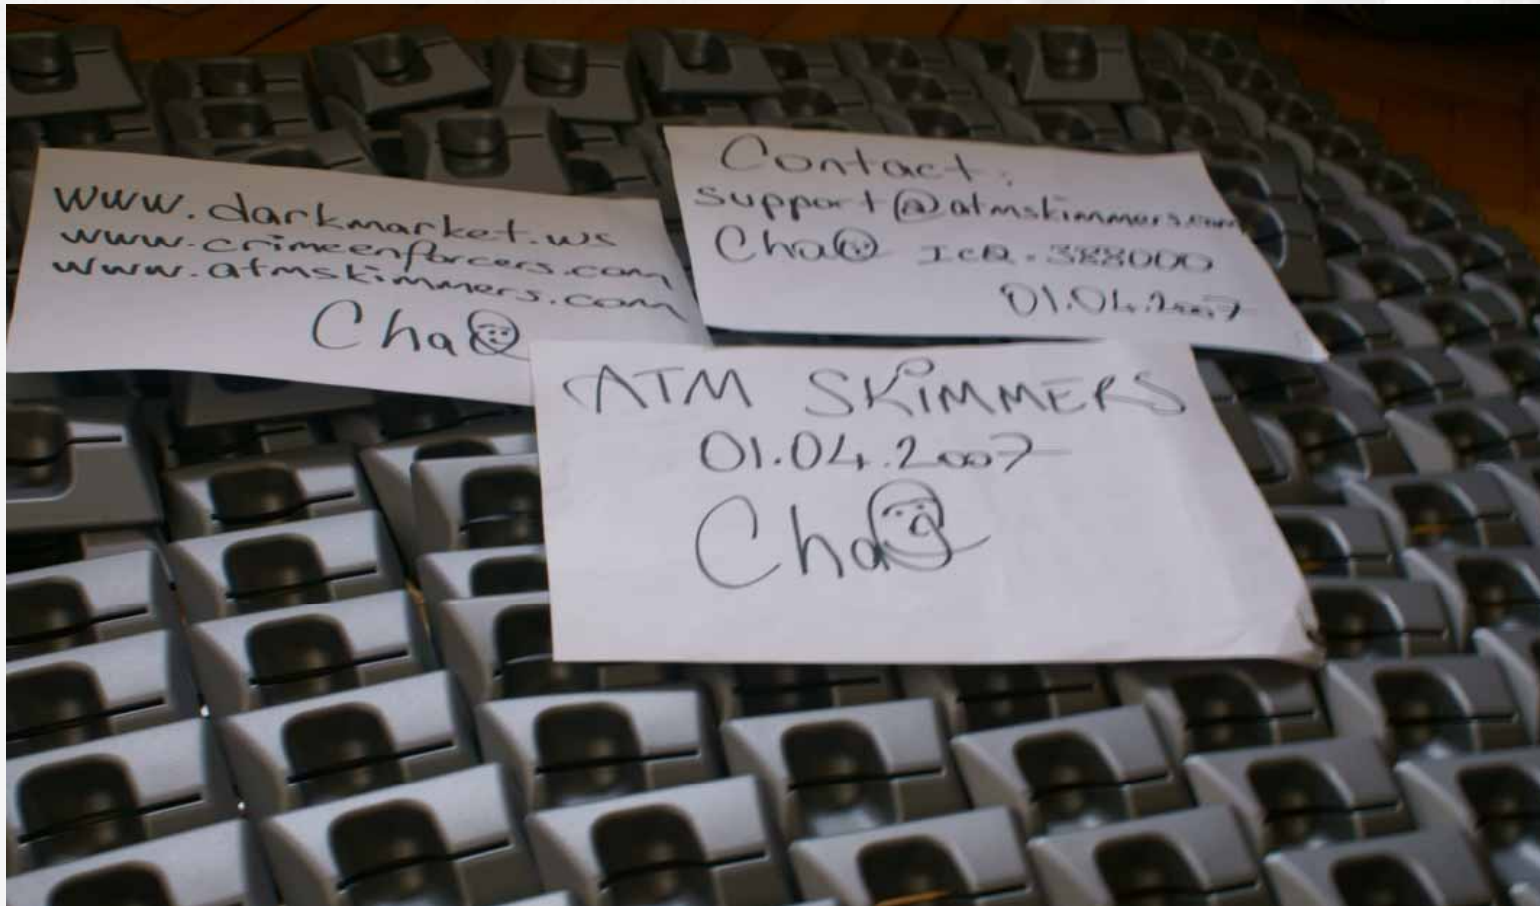 www.darkmarket.ws
www.crimeenforcers.com
www.atmskimmers.com
Cha
Contact:
support@atmskimmers.com
Cha ICQ. 388000
01.04.2007
ATM SKIMMERS
01.04.2007
Cha